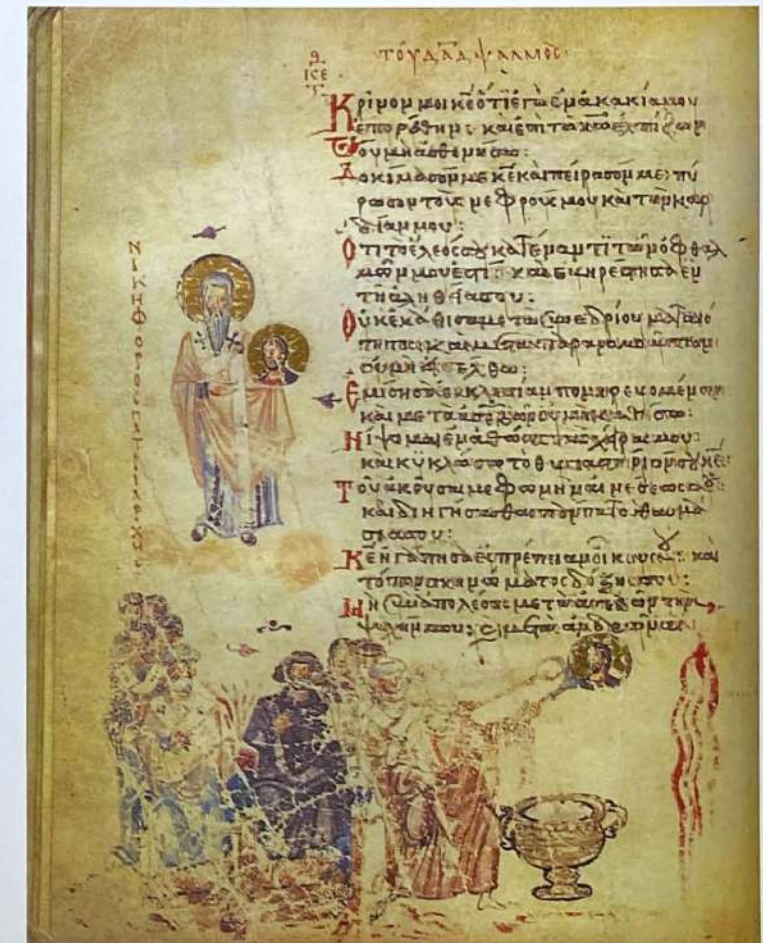 ΤΟΥ ΔΑΔ ΨΑΛΜΟΣ
Κρίνον μοι κε ὅτι ἐγὼ ἐν ἀκακία μου
ἐπορεύθην· καὶ ἐπὶ τῶ κω ἐλπίζων
οὐ μὴ ἀσθενήσω:
Δοκίμασόν με κε καὶ πείρασόν με· πύ
ρωσον τοὺς νεφρούς μου καὶ τὴν καρ
δίαν μου:
Ὅτι τὸ ἔλεός σου κατέναντι τῶν ὀφθαλ
μῶν μου ἐστί· καὶ εὐηρέστησα ἐν
τῆ ἀληθεία σου:
Οὐκ ἐκάθισα μετὰ συνεδρίου ματαιό
τητος καὶ μετὰ παρανομούντων
οὐ μὴ εἰσέλθω:
Ἐμίσησα ἐκκλησίαν πονηρευομένων
καὶ μετὰ ἀσεβῶν οὐ μὴ καθίσω:
Νίψομαι ἐν ἀθώοις τὰς χεῖρας μου
καὶ κυκλώσω τὸ θυσιαστήριόν σου κε:
Τοῦ ἀκοῦσαι με φωνῆς αἰνέσεώς σου
καὶ διηγήσασθαι πάντα τὰ θαυμά
σια σου:
Κε ἠγάπησα εὐπρέπειαν οἴκου σου: καὶ
τόπον σκηνώματος δόξης σου:
Μὴ συναπολέσης μετὰ ἀσεβῶν τὴν
ψυχήν μου:
ΝΙΚΗΦΟΡΟΣ ΠΑΤΡΙΑΡΧΗΣ